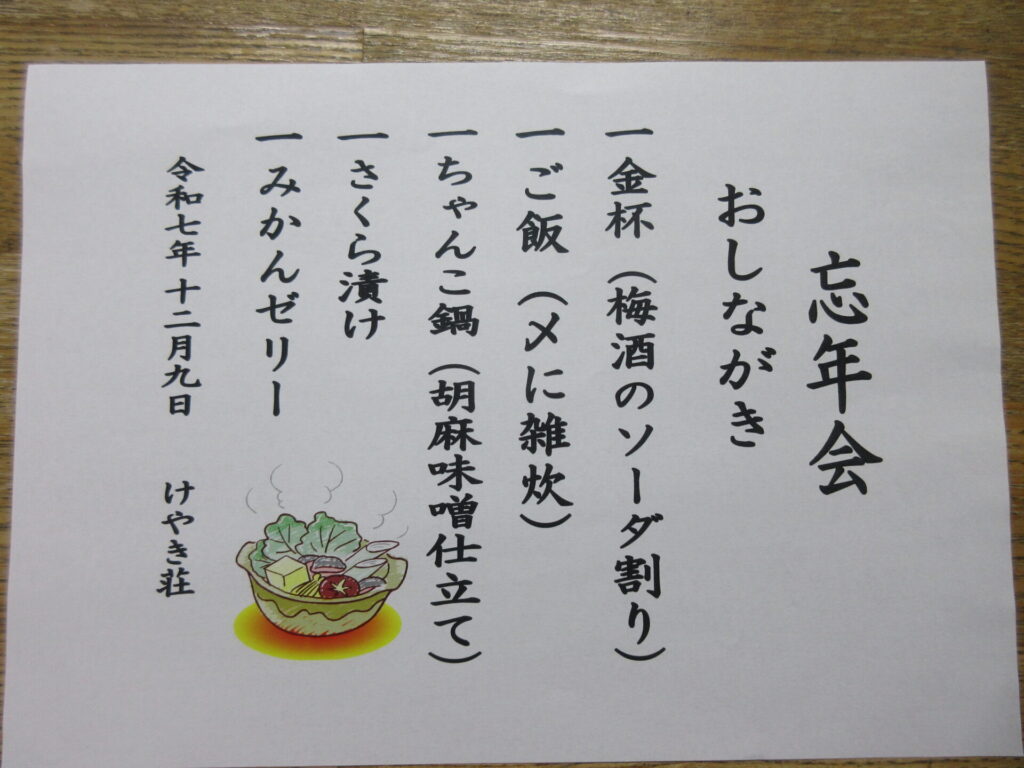 忘年会
おしながき
一 金杯 (梅酒のソーダ割り)
一 ご飯 (〆に雑炊)
一 ちゃんこ鍋 (胡麻味噌仕立て)
一 さくら漬け
一 みかんゼリー
令和七年十二月九日 けやき荘